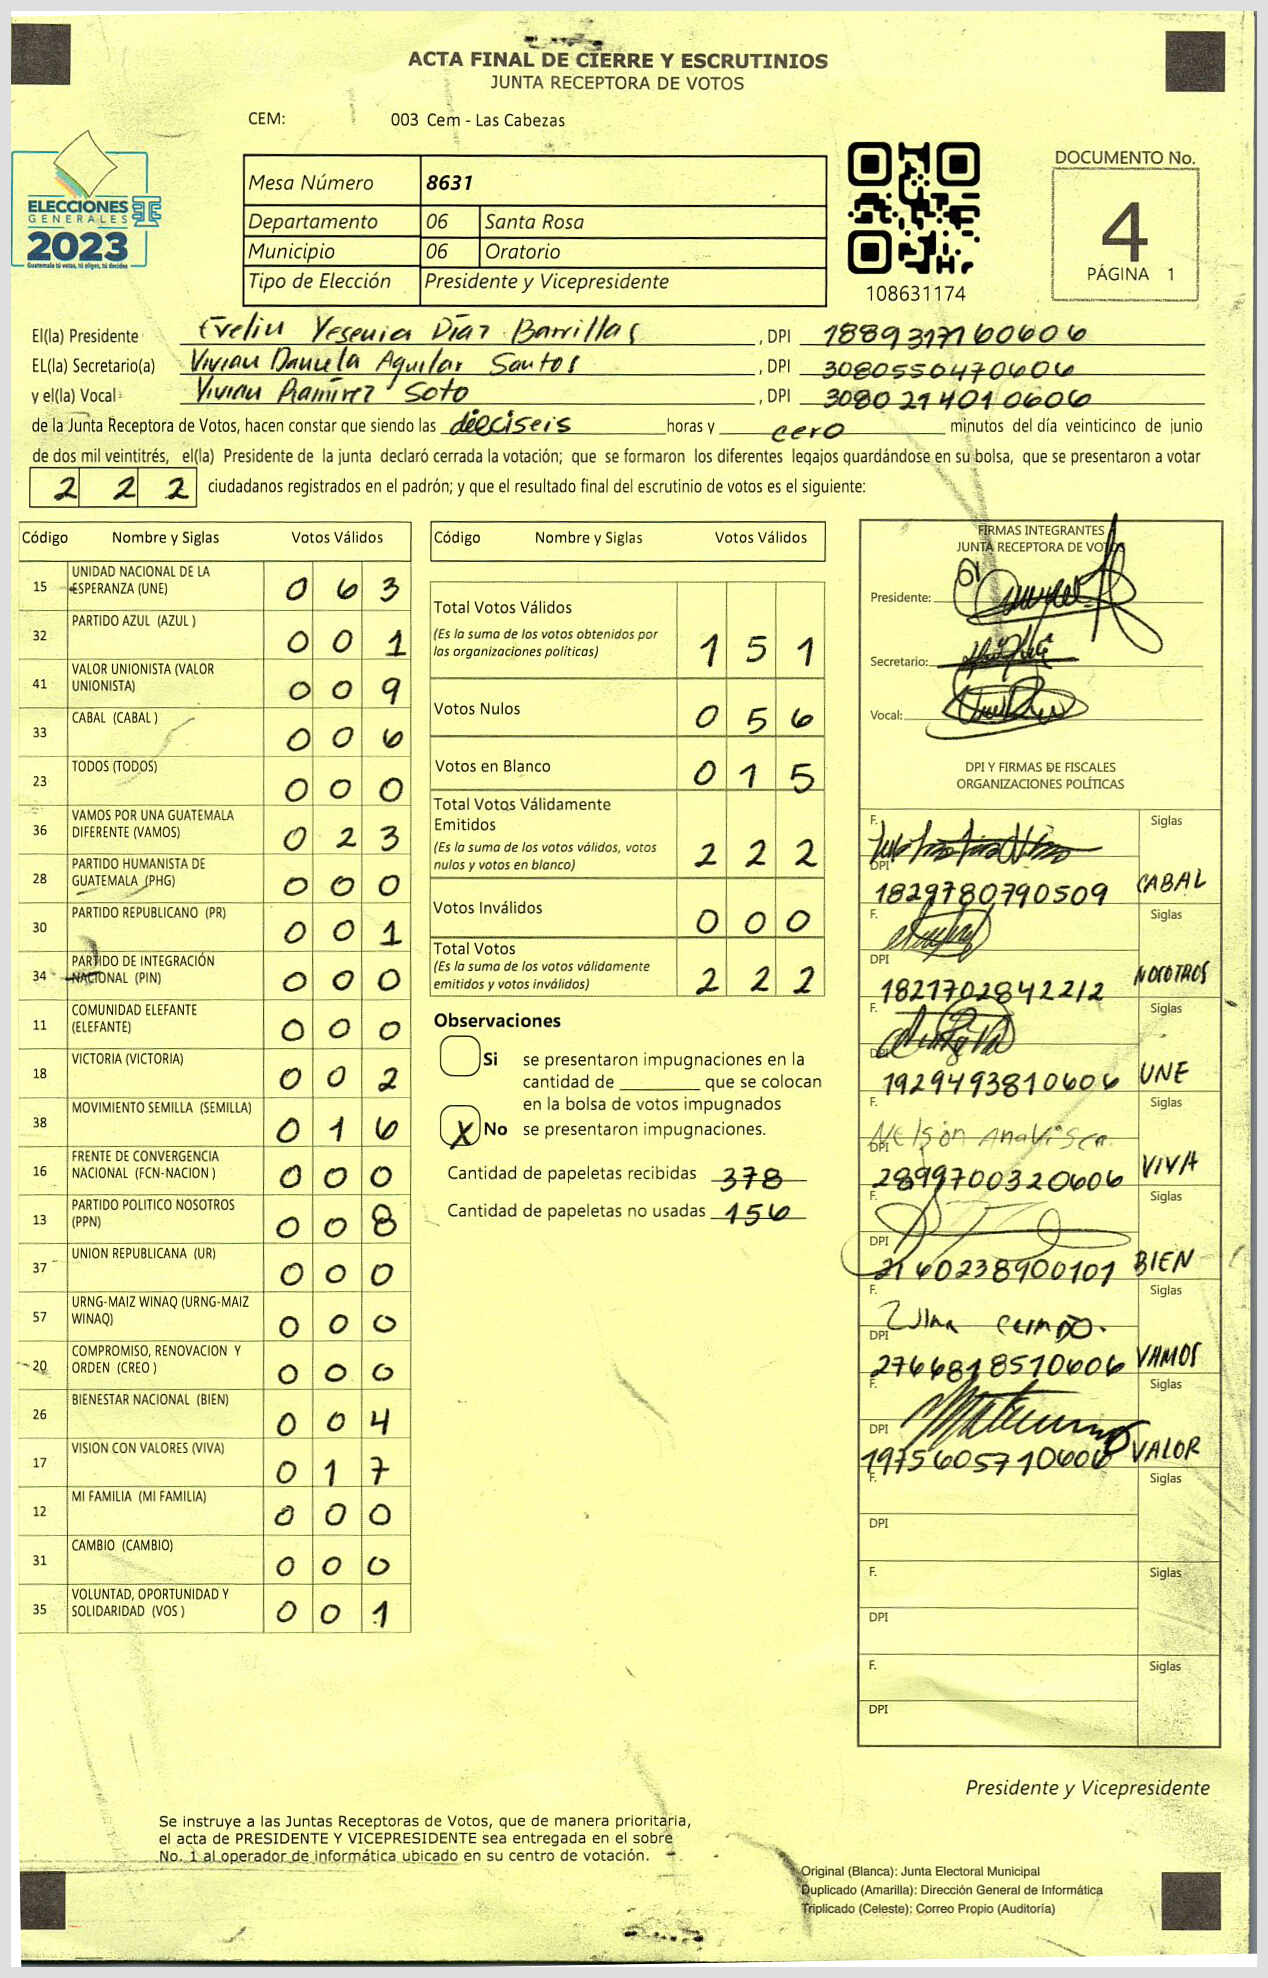 ACTA FINAL DE CIERRE Y ESCRUTINIOS
JUNTA RECEPTORA DE VOTOS
CEM: 003 Cem - Las Cabezas
ELECCIONES
GENERALES
2023
Guatemala tú votas, tú eliges, tú decides
Mesa Número 8631
Departamento 06 Santa Rosa
Municipio 06 Oratorio
Tipo de Elección Presidente y Vicepresidente
108631174
DOCUMENTO No.
4
PÁGINA 1
El(la) Presidente Evelin Yesenia Díaz Barrillas, DPI 1889317160606
EL(la) Secretario(a) Vivian Daniela Aguilar Santos, DPI 3080550470606
y el(la) Vocal Vivian Ramírez Soto, DPI 3080214010606
de la Junta Receptora de Votos, hacen constar que siendo las dieciseis horas y cero minutos del día veinticinco de junio
de dos mil veintitrés, el(la) Presidente de la junta declaró cerrada la votación; que se formaron los diferentes legajos guardándose en su bolsa, que se presentaron a votar
2 2 2 ciudadanos registrados en el padrón; y que el resultado final del escrutinio de votos es el siguiente:
Código Nombre y Siglas Votos Válidos
15 UNIDAD NACIONAL DE LA ESPERANZA (UNE) 0 6 3
32 PARTIDO AZUL (AZUL ) 0 0 1
41 VALOR UNIONISTA (VALOR UNIONISTA) 0 0 9
33 CABAL (CABAL ) 0 0 6
23 TODOS (TODOS) 0 0 0
36 VAMOS POR UNA GUATEMALA DIFERENTE (VAMOS) 0 2 3
28 PARTIDO HUMANISTA DE GUATEMALA (PHG) 0 0 0
30 PARTIDO REPUBLICANO (PR) 0 0 1
34 PARTIDO DE INTEGRACIÓN NACIONAL (PIN) 0 0 0
11 COMUNIDAD ELEFANTE (ELEFANTE) 0 0 0
18 VICTORIA (VICTORIA) 0 0 2
38 MOVIMIENTO SEMILLA (SEMILLA) 0 1 6
16 FRENTE DE CONVERGENCIA NACIONAL (FCN-NACION ) 0 0 0
13 PARTIDO POLITICO NOSOTROS (PPN) 0 0 8
37 UNION REPUBLICANA (UR) 0 0 0
57 URNG-MAIZ WINAQ (URNG-MAIZ WINAQ) 0 0 0
20 COMPROMISO, RENOVACION Y ORDEN (CREO ) 0 0 0
26 BIENESTAR NACIONAL (BIEN) 0 0 4
17 VISION CON VALORES (VIVA) 0 1 7
12 MI FAMILIA (MI FAMILIA) 0 0 0
31 CAMBIO (CAMBIO) 0 0 0
35 VOLUNTAD, OPORTUNIDAD Y SOLIDARIDAD (VOS ) 0 0 1
Código Nombre y Siglas Votos Válidos
Total Votos Válidos
(Es la suma de los votos obtenidos por
las organizaciones políticas) 1 5 1
Votos Nulos 0 5 6
Votos en Blanco 0 1 5
Total Votos Válidamente
Emitidos
(Es la suma de los votos válidos, votos
nulos y votos en blanco) 2 2 2
Votos Inválidos 0 0 0
Total Votos
(Es la suma de los votos válidamente
emitidos y votos inválidos) 2 2 2
Observaciones
Si se presentaron impugnaciones en la
cantidad de ________ que se colocan
en la bolsa de votos impugnados
X No se presentaron impugnaciones.
Cantidad de papeletas recibidas 378
Cantidad de papeletas no usadas 156
FIRMAS INTEGRANTES
JUNTA RECEPTORA DE VOTOS
Presidente:
Secretario:
Vocal:
DPI Y FIRMAS DE FISCALES
ORGANIZACIONES POLÍTICAS
F. Siglas
DPI 1829780790509 CABAL
F. Siglas
DPI 1821702842212 NOSOTROS
F. Siglas
DPI 1929493810606 UNE
F. Nelson Siglas
DPI 2899700320606 VIVA
F. Siglas
DPI 2160238900101 BIEN
F. Siglas
DPI 2766818510606 VAMOS
F. Siglas
DPI 1975605710606 VALOR
F. Siglas
DPI
F. Siglas
DPI
F. Siglas
DPI
Presidente y Vicepresidente
Se instruye a las Juntas Receptoras de Votos, que de manera prioritaria,
el acta de PRESIDENTE Y VICEPRESIDENTE sea entregada en el sobre
No. 1 al operador de informática ubicado en su centro de votación.
Original (Blanca): Junta Electoral Municipal
Duplicado (Amarilla): Dirección General de Informática
Triplicado (Celeste): Correo Propio (Auditoría)